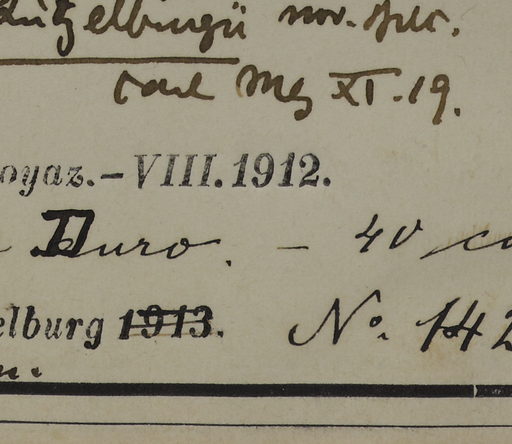 Lützelburgii nov. spec.
Carl Mez XI.19.
oyaz.–VIII. 1912.
Duro. – 40 c
elburg 1913. No. 142